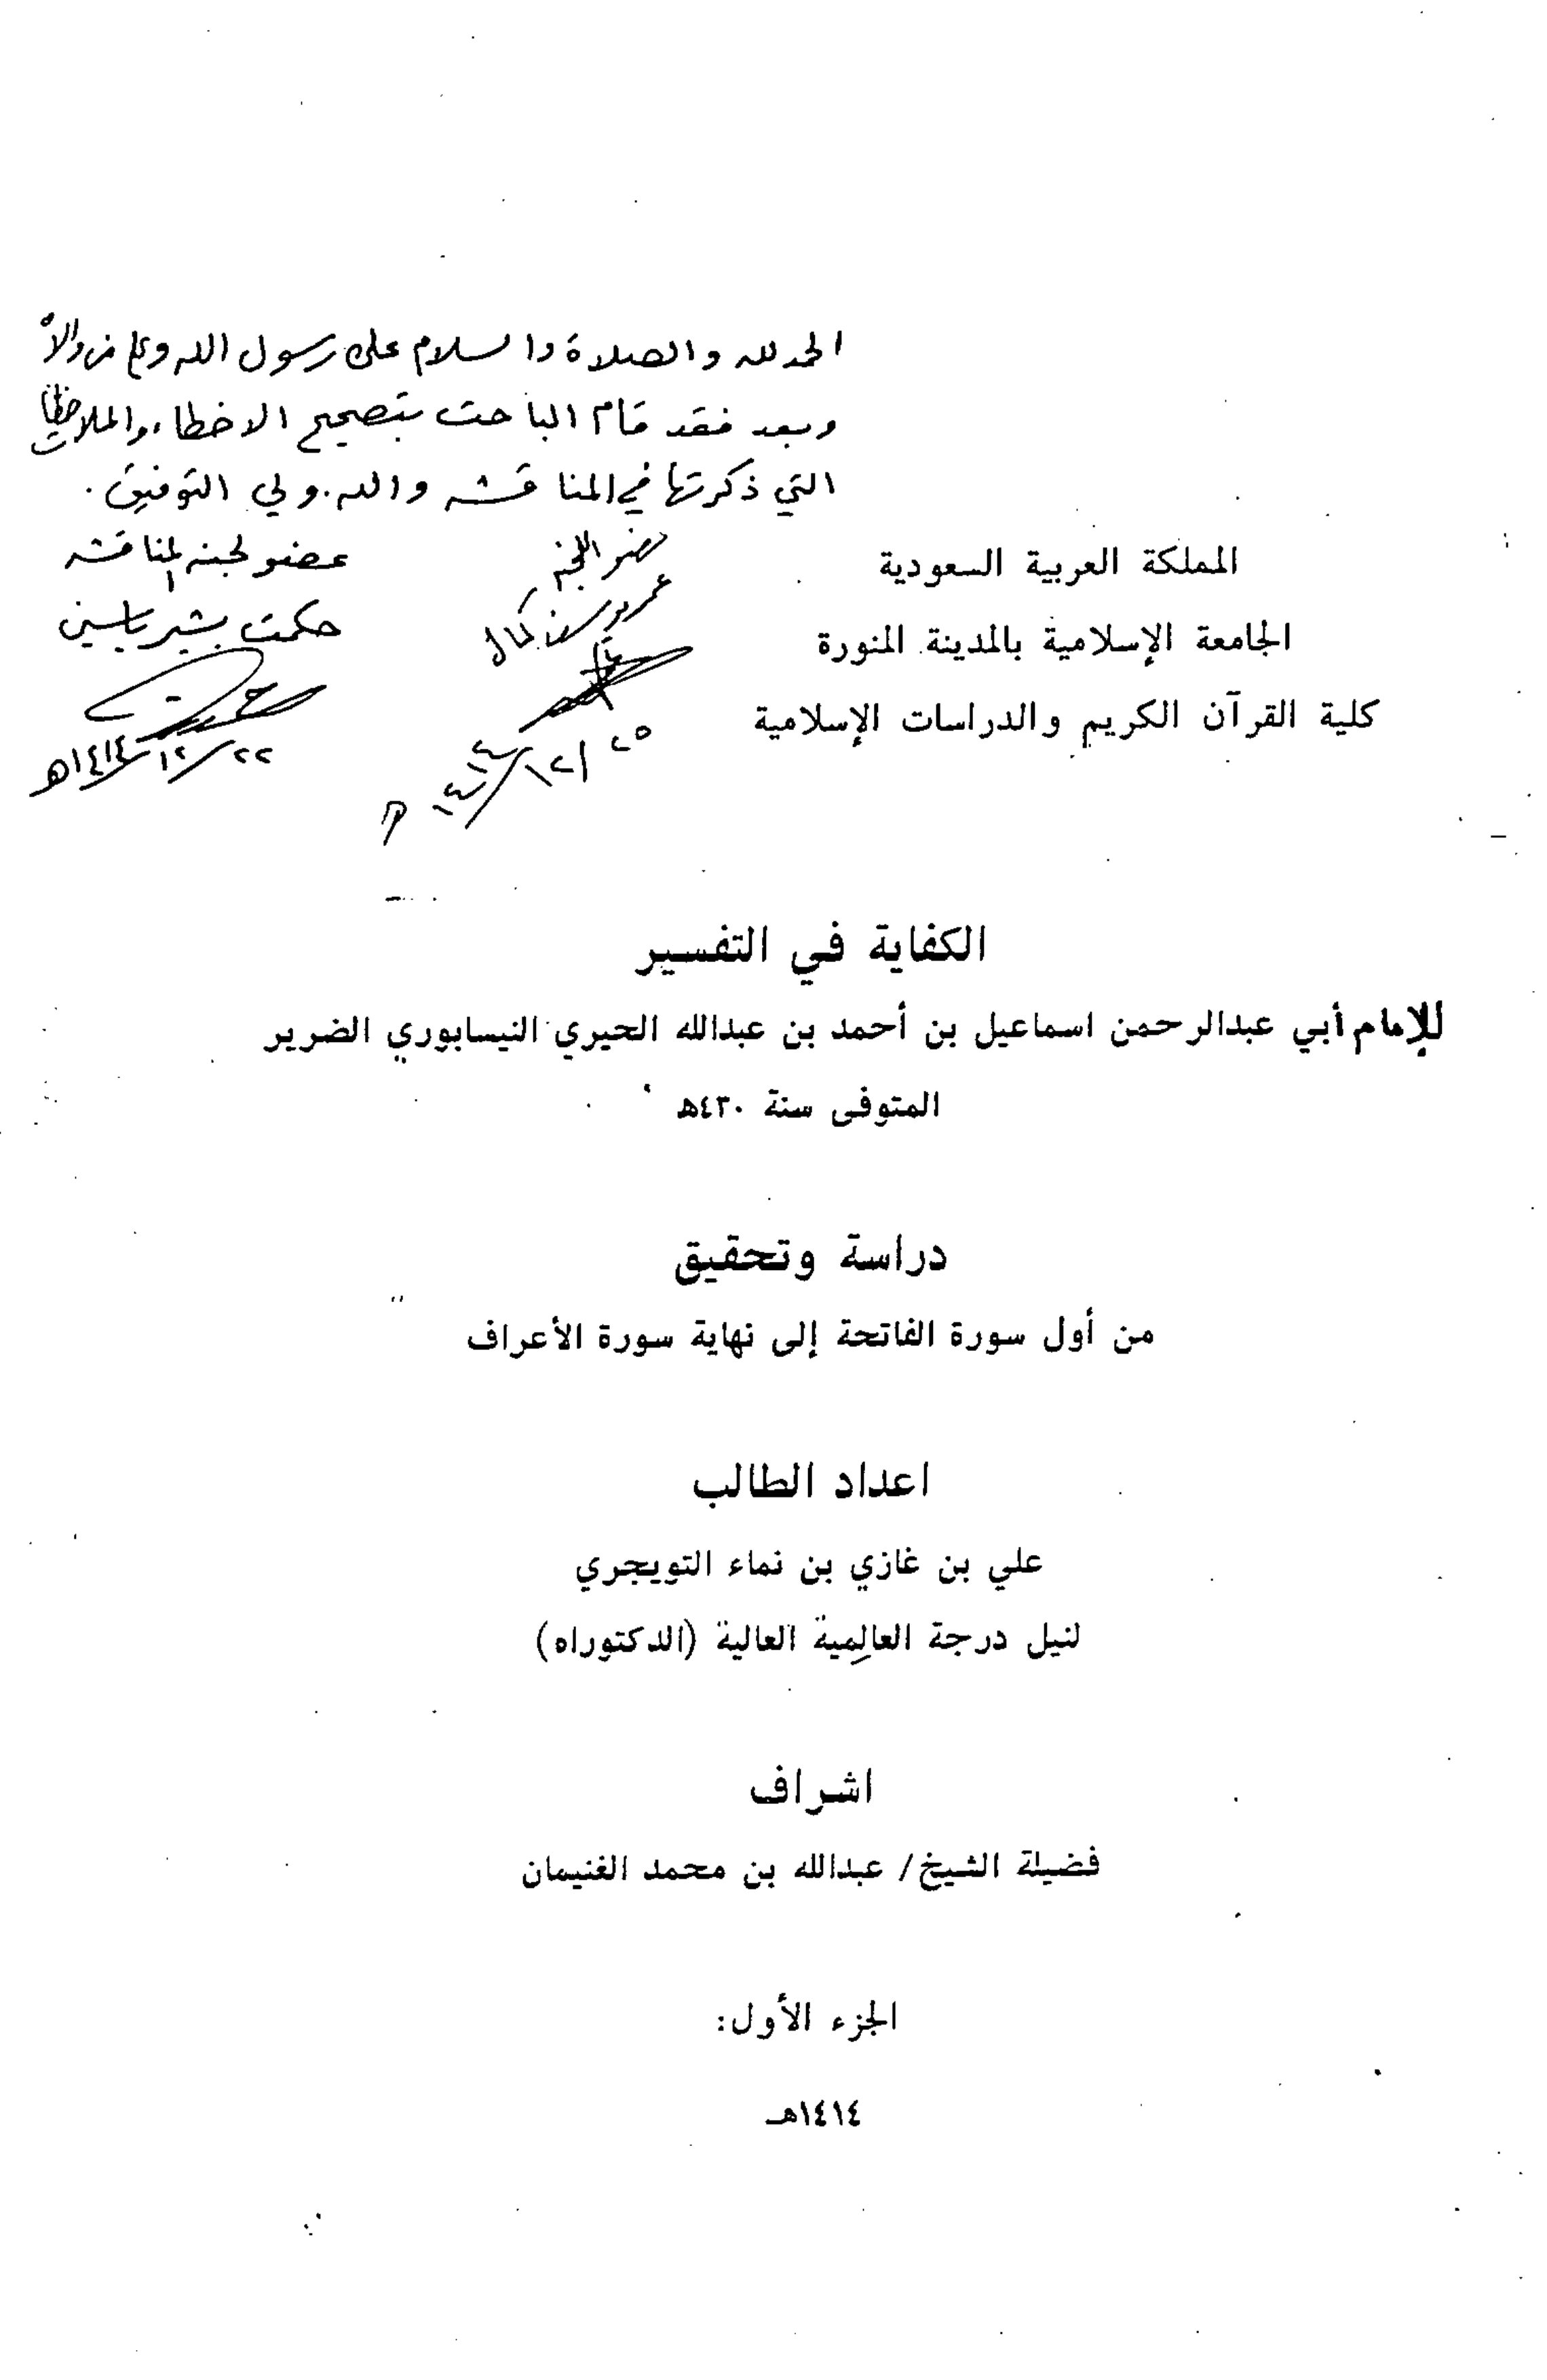 الحمد لله والصلاة والسلام على رسول الله وعلى من والاه
وبعد فقد قام الباحث بتصحيح الاخطاء والملاحظات
التي ذكرتها في المناقشة والله ولي التوفيق .
عضو لجنة المناقشة
حكمت بشير ياسين
٢٢/١٢/١٤١٤هـ
عضو اللجنة
عمر يوسف كمال
٢٥/١٢/١٤١٤ هـ
المملكة العربية السعودية
الجامعة الإسلامية بالمدينة المنورة
كلية القرآن الكريم والدراسات الإسلامية
الكفاية في التفسير
للإمام أبي عبدالرحمن اسماعيل بن أحمد بن عبدالله الحيري النيسابوري الضرير
المتوفى سنة ٤٣٠هـ
دراسة وتحقيق
من أول سورة الفاتحة إلى نهاية سورة الأعراف
اعداد الطالب
علي بن غازي بن نماء التويجري
لنيل درجة العالِمية العالية (الدكتوراه)
اشراف
فضيلة الشيخ/ عبدالله بن محمد الغنيمان
الجزء الأول:
١٤١٤هـ